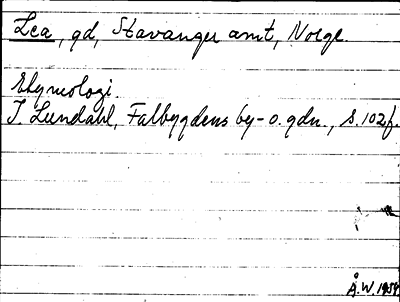 Lea, gd, Stavanger amt, Norge.
Etymologi.
I. Lundahl, Falbygdens by- o. gdn., s. 102f.
Å.W. 1959